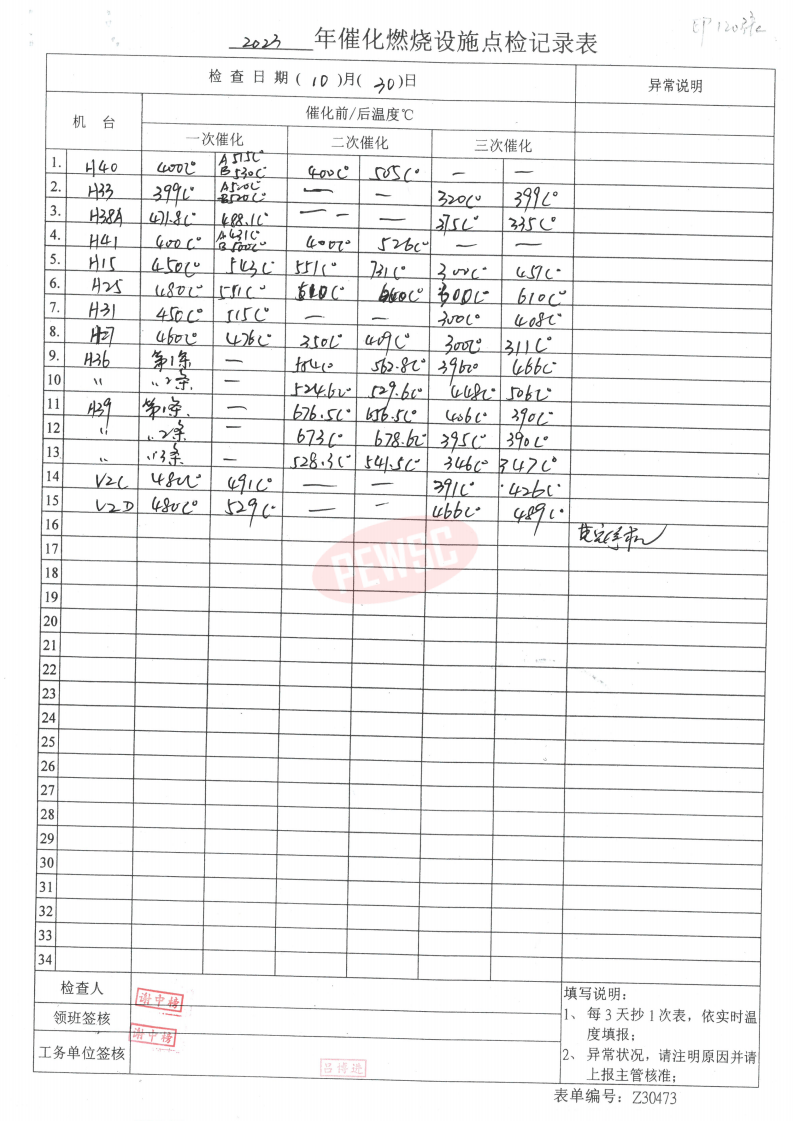 2023 年催化燃烧设施点检记录表
检查日期(10)月(30)日 异常说明
机 台 催化前/后温度℃
一次催化 二次催化 三次催化
1. H40 400C° A 515C° B 530C° 400C° 505C° — —
2. H33 399C° A520C° B520C° — — 320C° 399C°
3. H38A 471.8C° 488.1C° — — 375C° 335C°
4. H41 400C° A431C° B500C° 400C° 526C° — —
5. H15 450C° 543C° 551C° 731C° 300C° 457C°
6. H25 480C° 551C° 640C° 300C° 610C°
7. H31 450C° 515C° — — 300C° 408C°
8. H27 460C° 476C° 350C° 409C° 300C° 311C°
9. H36 第1条 — 562.8C° 396C° 466C°
10 〃 〃2条 — 524.6C° 529.6C° 448C° 506C°
11 H39 第1条 — 676.5C° 656.5C° 406C° 390C°
12 〃 〃2条 — 673C° 678.6C° 395C° 390C°
13 〃 〃3条 — 528.3C° 541.5C° 346C° 347C°
14 V2C 480C° 491C° — — 391C° 426C°
15 V2D 480C° 529C° — — 466C° 489C°
16
17
18
19
20
21
22
23
24
25
26
27
28
29
30
31
32
33
34
PEWSC
检查人 谢中榜
领班签核 谢中榜
工务单位签核 吕博进
填写说明:
1、每3天抄1次表，依实时温
度填报;
2、异常状况，请注明原因并请
上报主管核准;
表单编号：Z30473